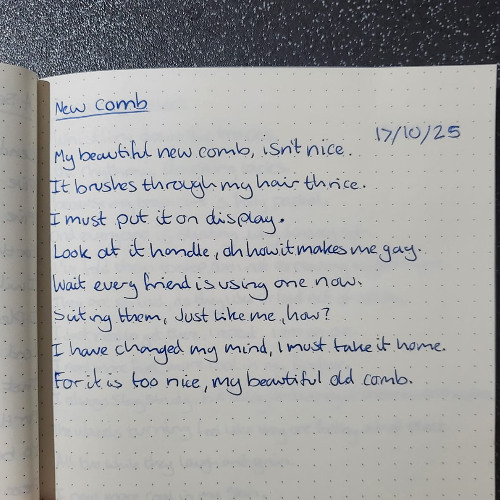 New comb
17/10/25
My beautiful new comb, isn't nice.
It brushes through my hair thrice.
I must put it on display.
Look at it handle, oh how it makes me gay.
Wait every friend is using one now.
Suiting them, Just like me, how?
I have changed my mind, i must take it home.
For it is too nice, my beautiful old comb.